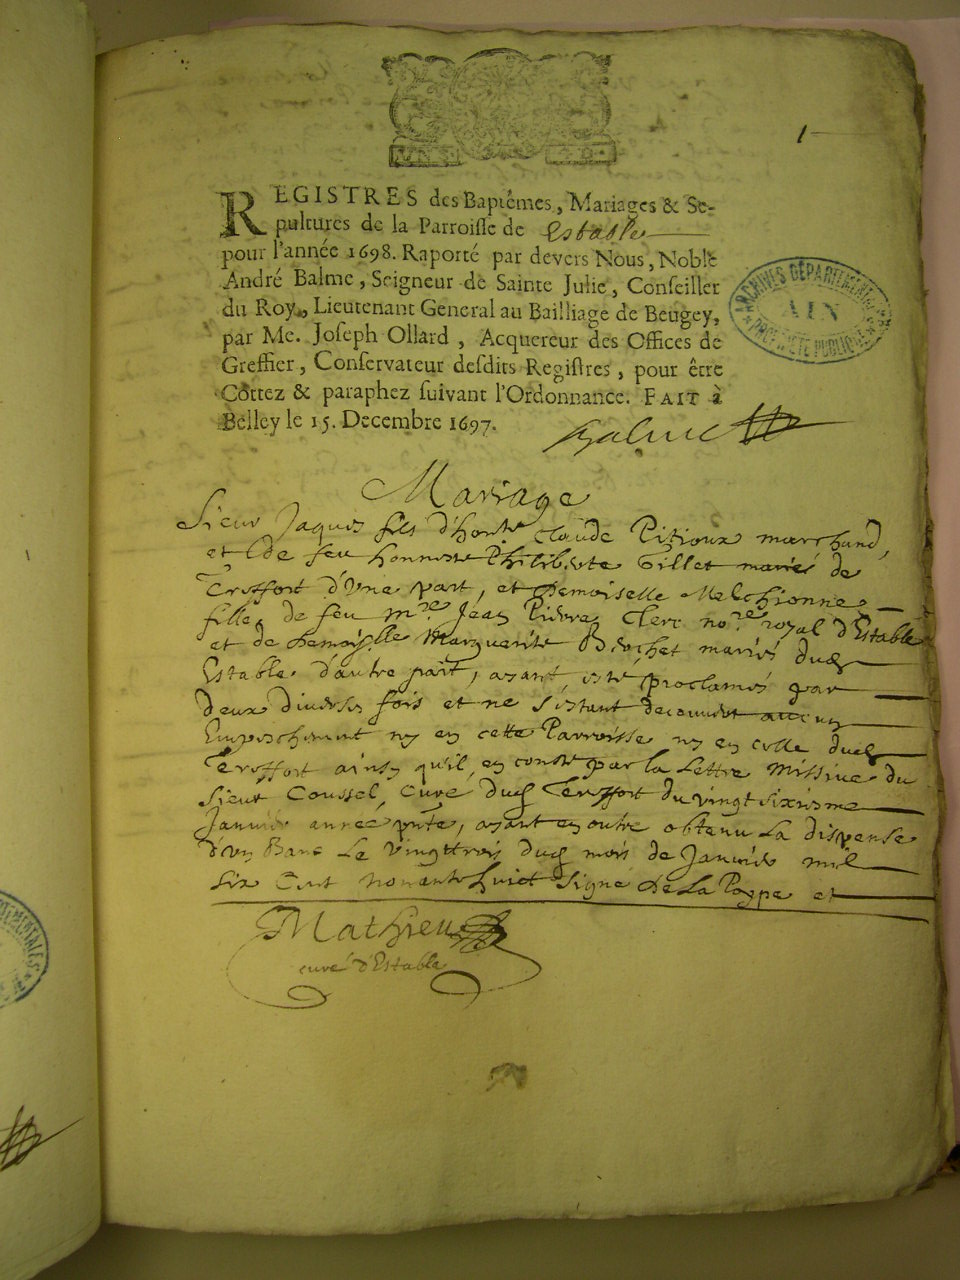 1
REGISTRES des Baptêmes, Mariages & Se-
pultures de la Parroisse de Estable
pour l'année 1698. Raporté par devers Nous, Noble
André Balme, Seigneur de Sainte Julie, Conseiller
du Roy, Lieutenant General au Bailliage de Beugey,
par Me. Joseph Ollard, Acquereur des Offices de
Greffier, Conservateur desdits Registres, pour être
Cottez & paraphez suivant l'Ordonnance. FAIT à
Belley le 15. Decembre 1697.
Balme
ARCHIVES DÉPARTEMENTALES
AIN
PROPRIÉTÉ PUBLIQUE
Mariage
Sieur Jaques fils d'honte Claude Pitioux marchand,
et de feu honneste Philiberte Tillet mariés de
Treffort d'Une part, et Demoiselle Melchionne
fille de feu Mre Jean Pierre Clerc nore royal d'Estable
et de Demoiselle Marguerite Brochet mariés dud
Estable d'autre part, ayant esté proclamés par
deux diverses fois et ne sestant decouvert aucun
Empeschement ny en cette Parroisse ny en celle dud
Treffort ainsy qu'il en conste par la Lettre Missive du
Sieur Coussel, Curé dud Treffort du vingt sixiesme
Janvier année pnte, ayant en outre obtenu La dispense
d'un Banc Le vingttrois dud mois de Janvier mil
six Cent nonante huict signé De La Poype et
Mathieu
curé d'Estable